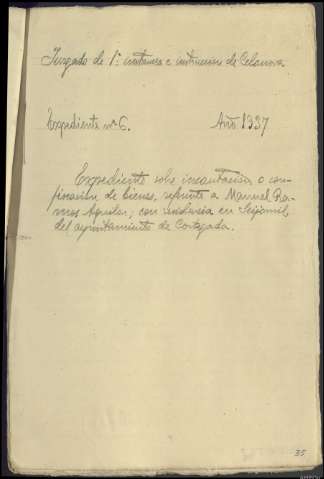 Juzgado de 1ª instancia e instrucción de Celanova
Expediente nº 6. Año 1937
Expediente sobre incautación o con-
fiscación de bienes, referente a Manuel Ra-
mos Aguilar, con residencia en
del ayuntamiento de Cortegada.
35